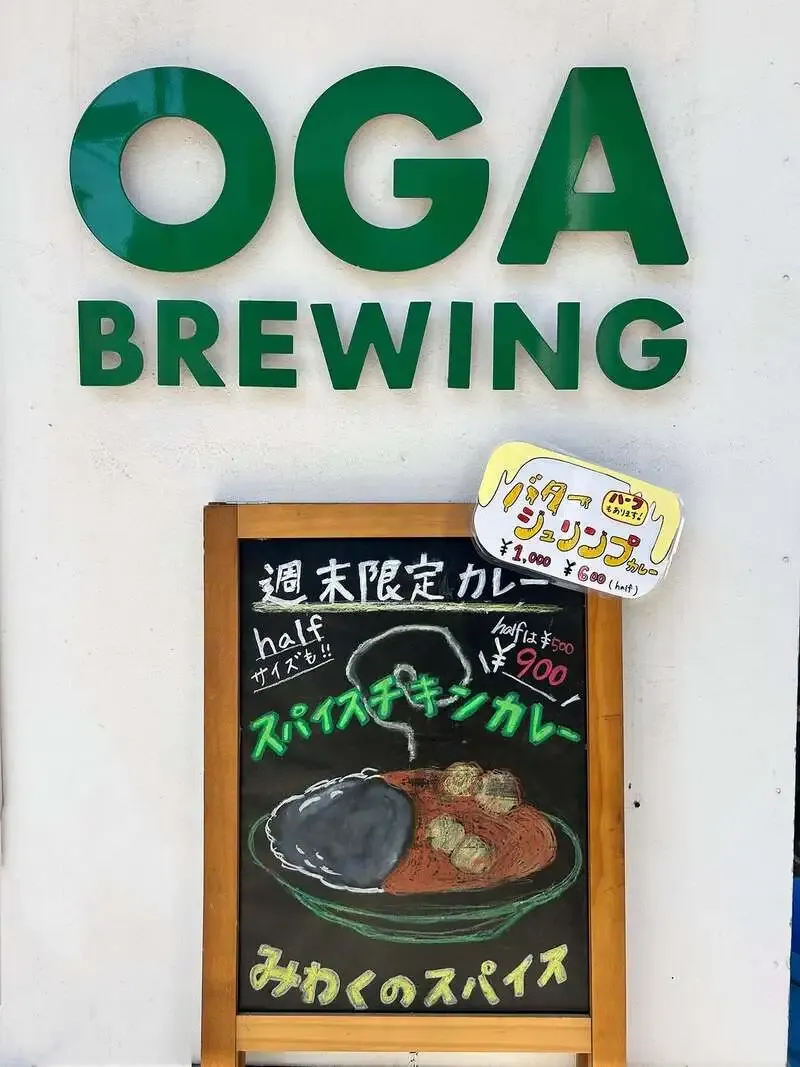 OGA
BREWING
バター
ハーフ
もあります!
シュリンプカレー
¥1,000 ¥600 (half)
週末限定カレー
half
サイズも!!
halfは¥500
¥900
スパイスチキンカレー
みわくのスパイス